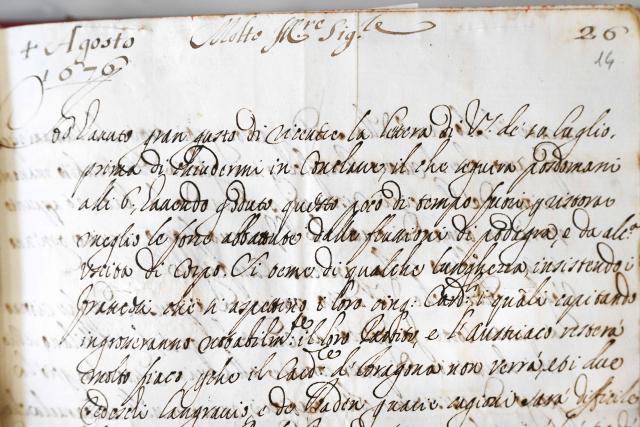 + Agosto Molto Ill.re Sig.re 26
1676 14
Ho havuto gran gusto di ricevere la lettera di V.S. de 10 luglio,
prima di chiudermi in Conclave il che seguera posdomani
adi 6, havendo goduto questo poco di tempo fuori p ristorar
meglio le forze abbattute dalle flussioni di podagra, e da alc.a
uscita di Corpo. Si teme di qualche lunghezza insistendo i
francesi che si aspettino i loro Card.i quali capitando
ingrosseranno notabilm.te il loro partito, e l'Austriaco restera
molto fiaco, pche il Card.le d'Aragona non verrà, e i due
Tedeschi Langravio, e de Baden sarà difficile